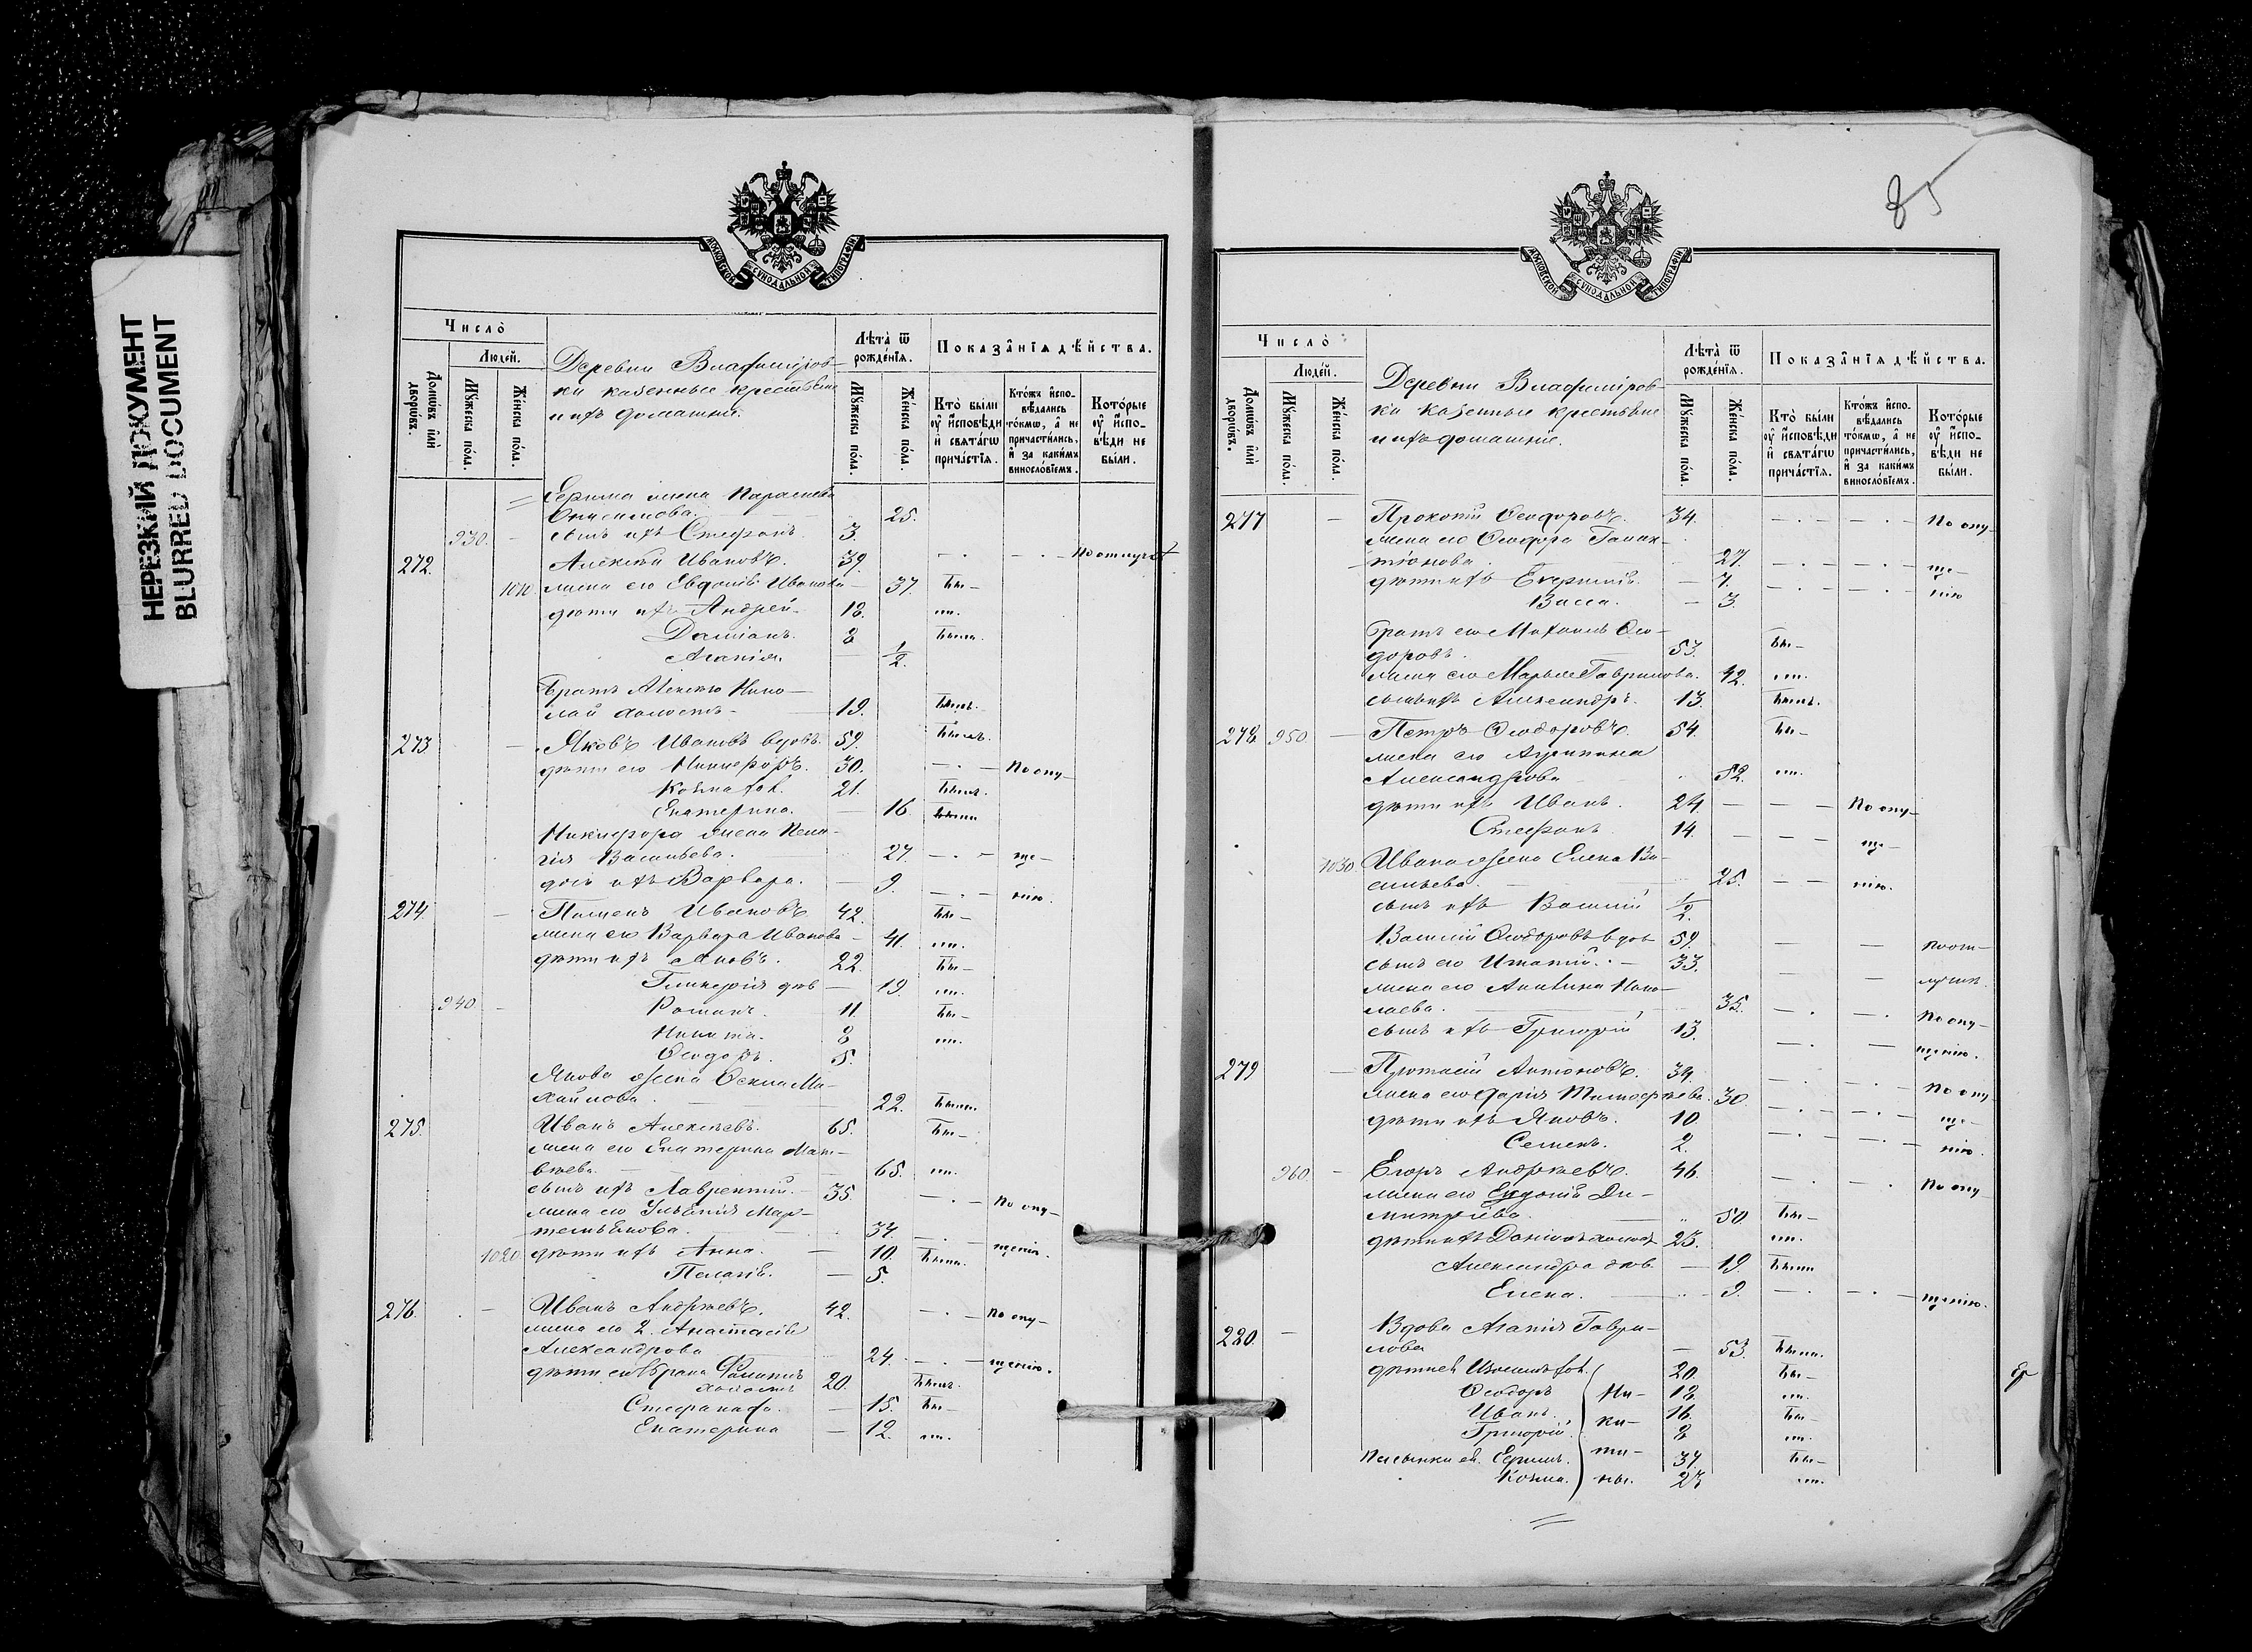 НЕРЕЗКИЙ ДОКУМЕНТ
BLURRED DOCUMENT
МОСКОВСКОЙ СѴНОДАЛЬНОЙ ТИПОГРАФІИ
Число̀
Людей.
Домѡ́въ и҆лѝ дворѡ́въ.
Мꙋ́жеска по́ла.
Же́нска по́ла.
Деревни Владиміров-
ки казенные крестьяне
и ихъ домашніе.
Лѣ́та ѿ рожде́нїѧ.
Мꙋ́жеска по́ла.
Же́нска по́ла.
Показа̑нїѧ дѣ́йства.
Кто̀ бы́ли оу҆ и҆́сповѣди и҆ свѧта́гѡ прича́стїѧ.
Кто́жъ и҆спо-вѣ́дались то́кмѡ, а҆ не причасти́лись, и҆ за каки́мъ винословїемъ.
Кото́рые оу҆ и҆спо-вѣди не бы́ли.
жена
Онисимова. 25.
930. сынъ ихъ Стефанъ. 3.
272. Алексѣй Ивановъ. 39. По отлучкѣ
1010. жена его Евдокія Иванова 37. бы-
дѣти ихъ Андрей 18. ли.
Даміанъ. 8 были.
Агапія. 1/2.
Братъ Алексѣя Нико-
лай холостъ 19. былъ.
273 Яковъ Ивановъ вдовъ. 59. былъ.
дѣти его Никифоръ. 30. По опу-
Козма хол. 21. былъ.
Екатерина. 16. были
Никифора жена Пела-
гія Васильева. 27. ще-
дочь ихъ Варвара. 9. нію.
274. Пименъ Ивановъ 42. бы-
жена его Варвара Иванова 41. ли.
дѣти ихъ Яковъ. 22. бы-
Гликерія дѣв 19. ли.
940 Романъ. 11. бы-
Никита. 8 ли.
Ѳеодоръ. 5.
Якова жена Ми-
хайлова. 22. была.
275. Иванъ Алексѣевъ. 65. бы-
жена его Екатерина Мат-
вѣева. 65. ли.
сынъ ихъ Лаврентій. 35. По опу-
жена его Мар-
34. щенію.
1020 дѣти ихъ Анна. 10. была.
Пелагія. 5.
276. Иванъ Андреевъ. 42. По опу-
жена его 2. Анастасія
Александрова 24. щенію.
дѣти
холостъ 20. былъ.
Стефанида. 15. бы-
Екатерина 12. ли.
85
Число̀
Людей.
Домѡ́въ и҆лѝ дворѡ́въ.
Мꙋ́жеска по́ла.
Же́нска по́ла.
Деревни Владиміров-
ки казенные крестьяне
и ихъ домашніе.
Лѣ́та ѿ рожде́нїѧ.
Мꙋ́жеска по́ла.
Же́нска по́ла.
Показа̑нїѧ дѣ́йства.
Кто̀ бы́ли оу҆ и҆́сповѣди и҆ свѧта́гѡ прича́стїѧ.
Кто́жъ и҆спо-вѣ́дались то́кмѡ, а҆ не причасти́лись, и҆ за каки́мъ винословїемъ.
Кото́рые оу҆ и҆спо-вѣди не бы́ли.
277 Прокопій Ѳеодоровъ. 34. По опу-
жена его Ѳеодора Галак-
тіонова. 27. ще-
дѣти ихъ 7. нію
Васса. 3.
Братъ его Михаилъ Ѳео-
доровъ. 53. бы-
жена его Марья Гаврилова. 42. ли.
сынъ ихъ Александръ. 13. былъ.
278. 950. Петръ Ѳеодоровъ. 54. бы-
жена его Агрипина
Александрова 52. ли.
дѣти ихъ Иванъ. 24. По опу-
Стефанъ 14. ще-
1030 Ивана жена Елена Ва-
сильева. 25. нію.
сынъ ихъ Василій 1/2
Василій Ѳеодоровъ вдов 59. по от-
сынъ его Игнатій. 33. лучкѣ.
жена его Акилина Нико-
лаева. 35. По опу-
сынъ ихъ Григорій 13. щенію.
279 Протасій Антоновъ. 34. По опу-
жена его Дарія Тимофѣева. 30. ще-
дѣти ихъ Яковъ. 10.
Семенъ. 2. нію.
960. Егоръ Андреевъ. 46. По опу-
жена его Евдокія Ди-
митріева. 50 бы-
дѣти ихъ Даніилъ холост 23. ли.
Александра дѣв. 19. была
Елена. 9. щенію.
280. Вдова Агапія Гаври-
лова 53. была.
дѣти ей хол. 20. бы-
Ѳеодоръ Ни- 18 ли.
Иванъ ки- 16. бы-
Григорій. ти- 8 ли.
Пасынки ей. Ефимъ. 37. бы-
Козма. ны. 23 ли.